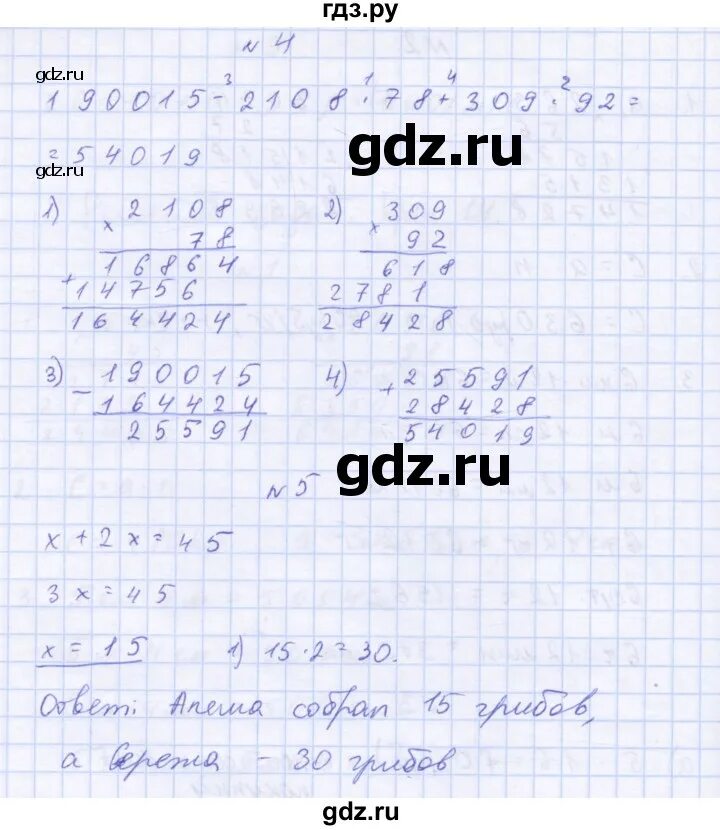 гдз.ру
№ 4
gdz.ru
190015 -³ 2108 ·¹ 78 +⁴ 309 ·² 92 =
= 54019
gdz.ru
gdz.ru
1) × 2108
78
+ 16864
14756
164424
2) × 309
92
618
2781
28428
3) - 190015
164424
25591
4) + 25591
28428
54019
gdz.ru
№ 5
x + 2x = 45
3x = 45
x = 15 1) 15 · 2 = 30.
Ответ: Алеша собрал 15 грибов,
а Сережа – 30 грибов
gdz.ru